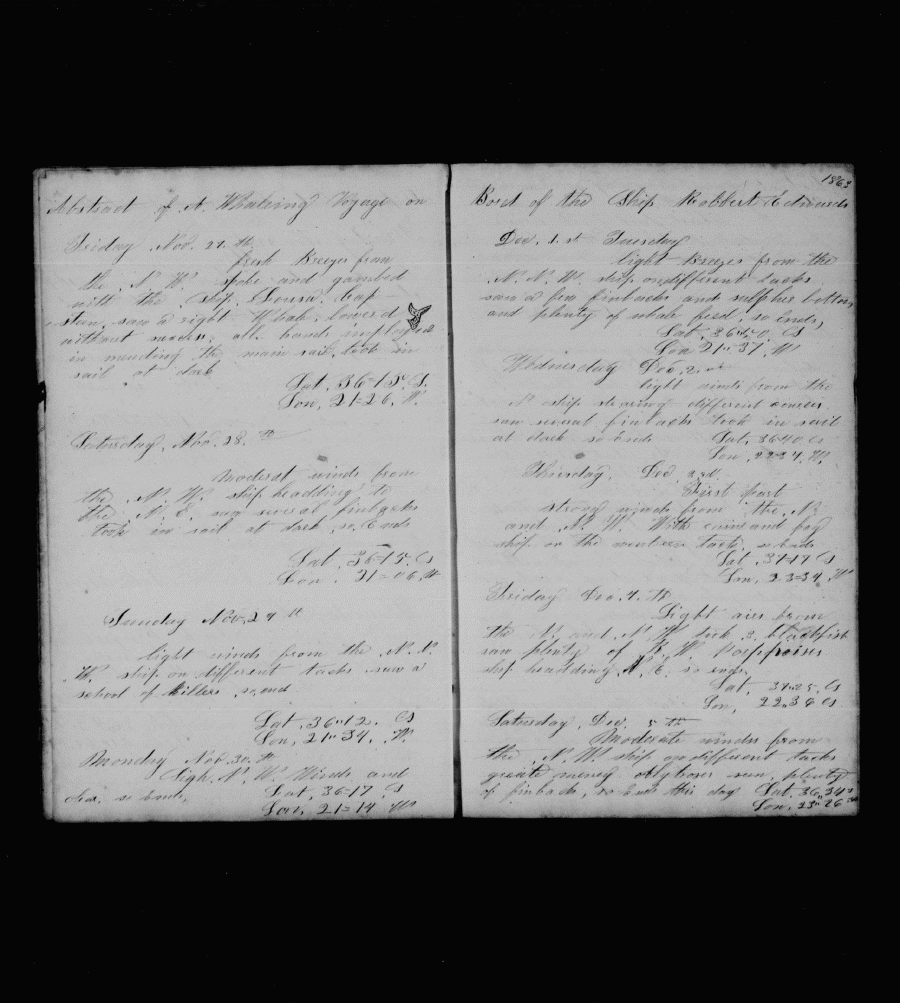 Abstract of A Whaleing Voyage on
Friday Nov. 27. th
fresh Breezes from
the N. W. spoke and gambed
with the Ship Lousa Cap
saw a right Whale. lowered
without sucess. all hands imployed
in mending the main sail, took in
sail at dark
Lat, 36=15 S.
Lon, 21=26, W.
Saturday, Nov. 28. th
moderat winds from
the N. W. ship headding to
the N. E. saw several finbacks
took in sail at dark so Ends
Lat 36=15. S
Lon. 21=06, W
Sunday Nov, 29 th
light winds from the N. N.
W. ship on different tacks saw a
school of killers so end
Lat, 36"12. S
Lon, 21"34, W.
Monday Nov. 30. th
Ligh N. W. Winds and
so Ends, Lat, 36=17 S
Lon, 21=14 W
1863
Bord of the Ship Robbert Edwards
Dec, 1. st Tuesday
light Breezes from the
N. N. W. ship on different tacks
saw a few finbacks and sulpher bottoms
and plenty of whale feed, so Ends,
Lat, S
Lon 21"37, W
Wednesday Dec, 2,
light winds from the
N ship stearing different courses
saw several finbacks took in sail
at dark so Ends Lat, 3640 S
Lon, 22=24, W,
Thursday, Dec, 3,
First part
strong winds from the N
and N. W. With rain and fog
ship on the western tack, so Ends
Lat, 37=17 S
Lon, 23=34, W
Friday Dec, 4. th
Light airs from
the N. and N. W. took 2 blackfish
saw plenty of R. W. Porpoises
ship headding N. E. so ends,
Lat, 37"25, S
Lon, 22"36 S
Saturday, Dec. 5 th
Moderate winds from
the N. W. ship on different tacks
greate meney allgboses seen, plenty
of finbacks, so Ends this day Lat, 36"24 S
Lon, 23"26